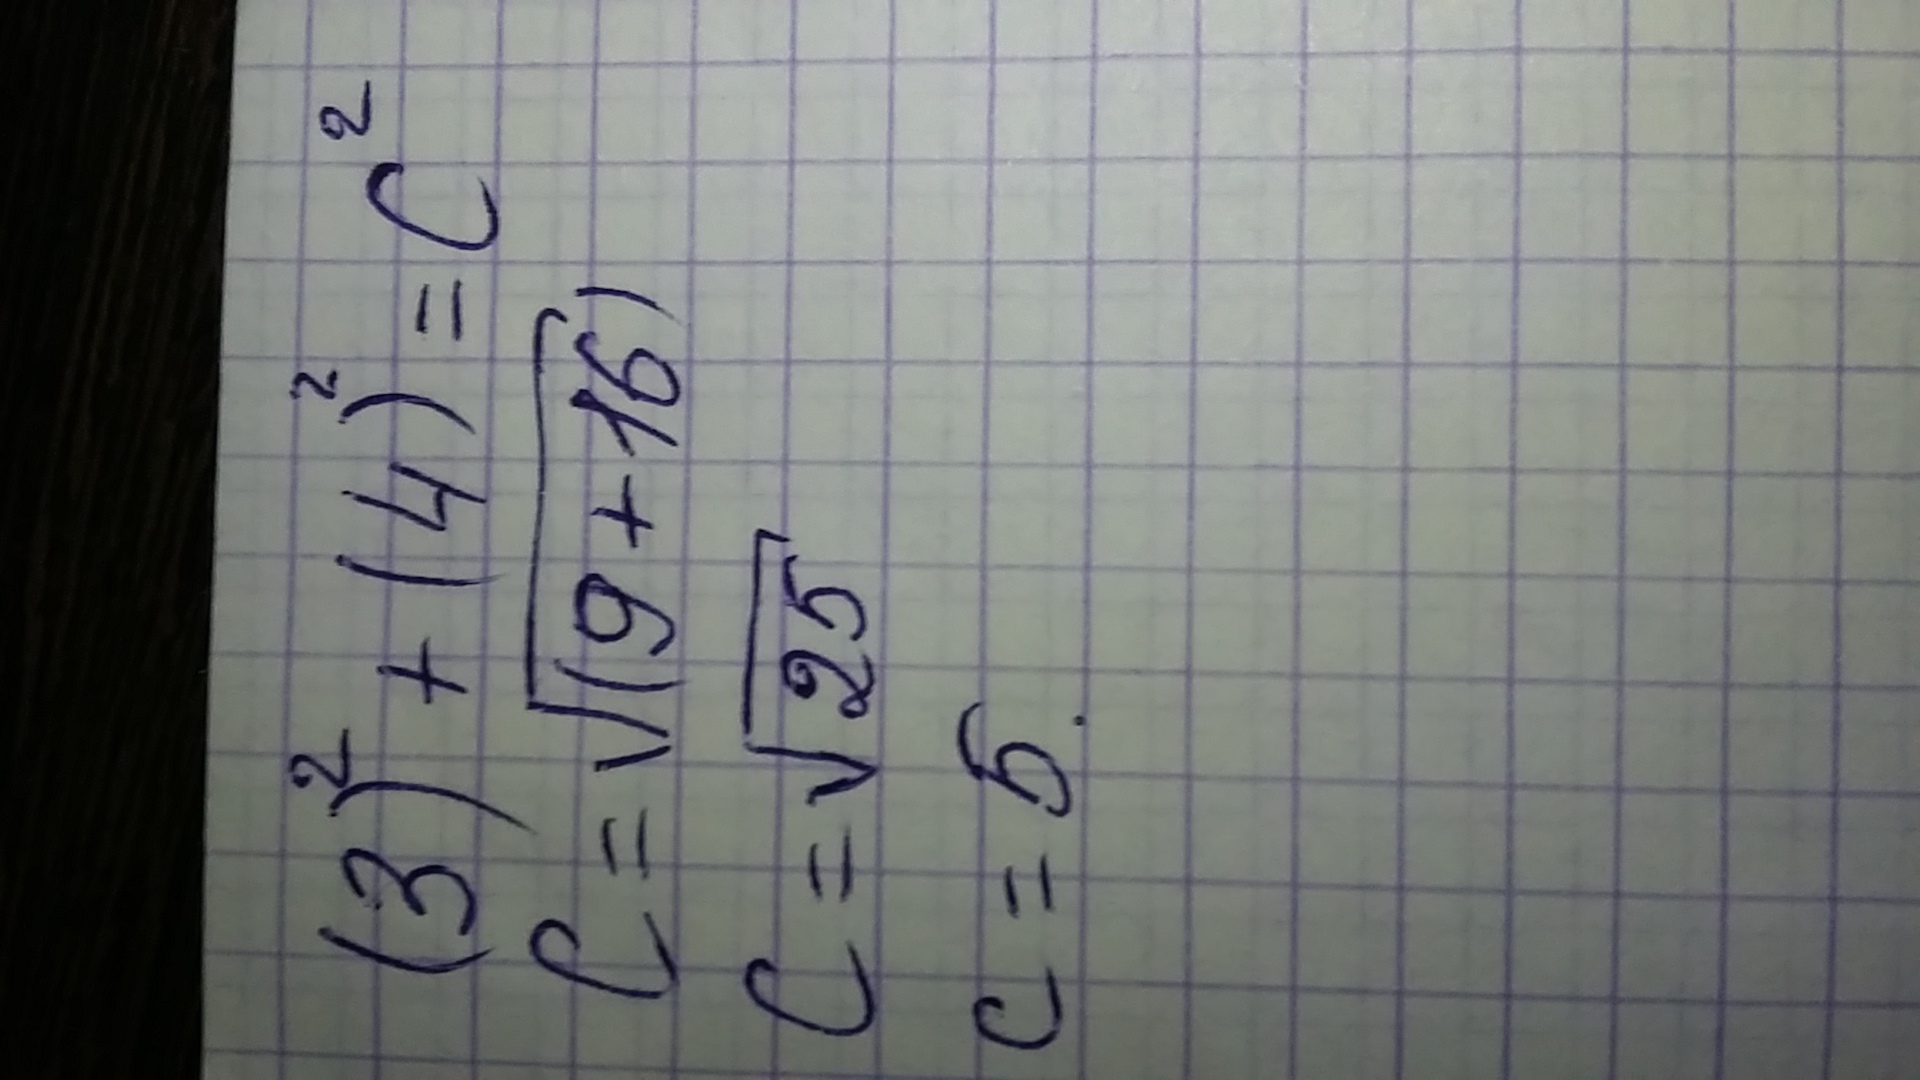 (3)² + (4)² = C²
C = √(9 + 16)
C = √25
C = 5.